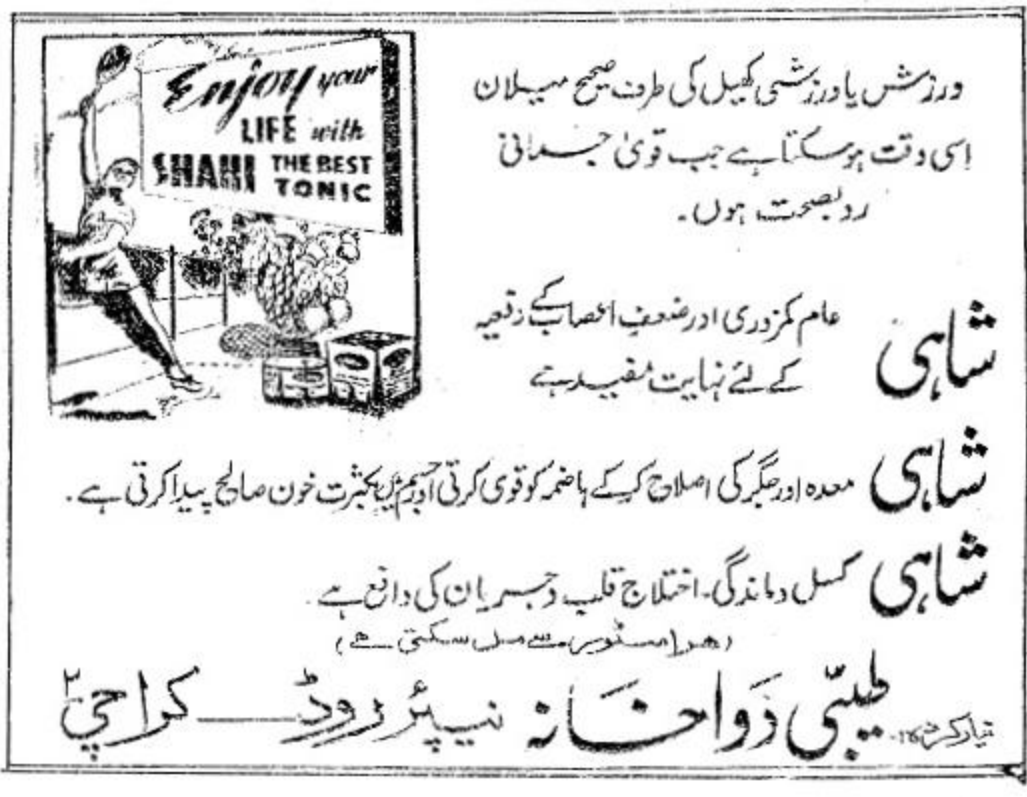 Enjoy your
LIFE with
SHAHI THE BEST
TONIC
ورزش یا ورزشی کھیل کی طرف صحیح میلان
اسی وقت ہوسکتا ہے جب قویٰ جسمانی
روبصحت ہوں۔
شاہی عام کمزوری اور ضعفِ اعصاب کے دفعیہ
کے لئے نہایت مفید ہے
شاہی معدہ اور جگر کی اصلاح کرکے ہاضمہ کو قوی کرتی اور جسم میں بکثرت خون صالح پیدا کرتی ہے۔
شاہی کسل و ماندگی۔ اختلاج قلب و جریان کی دافع ہے۔
(ھر اسٹور سے مل سکتی ھے)
طبّی دَواخَانہ نیپئر روڈ — کراچی ۲